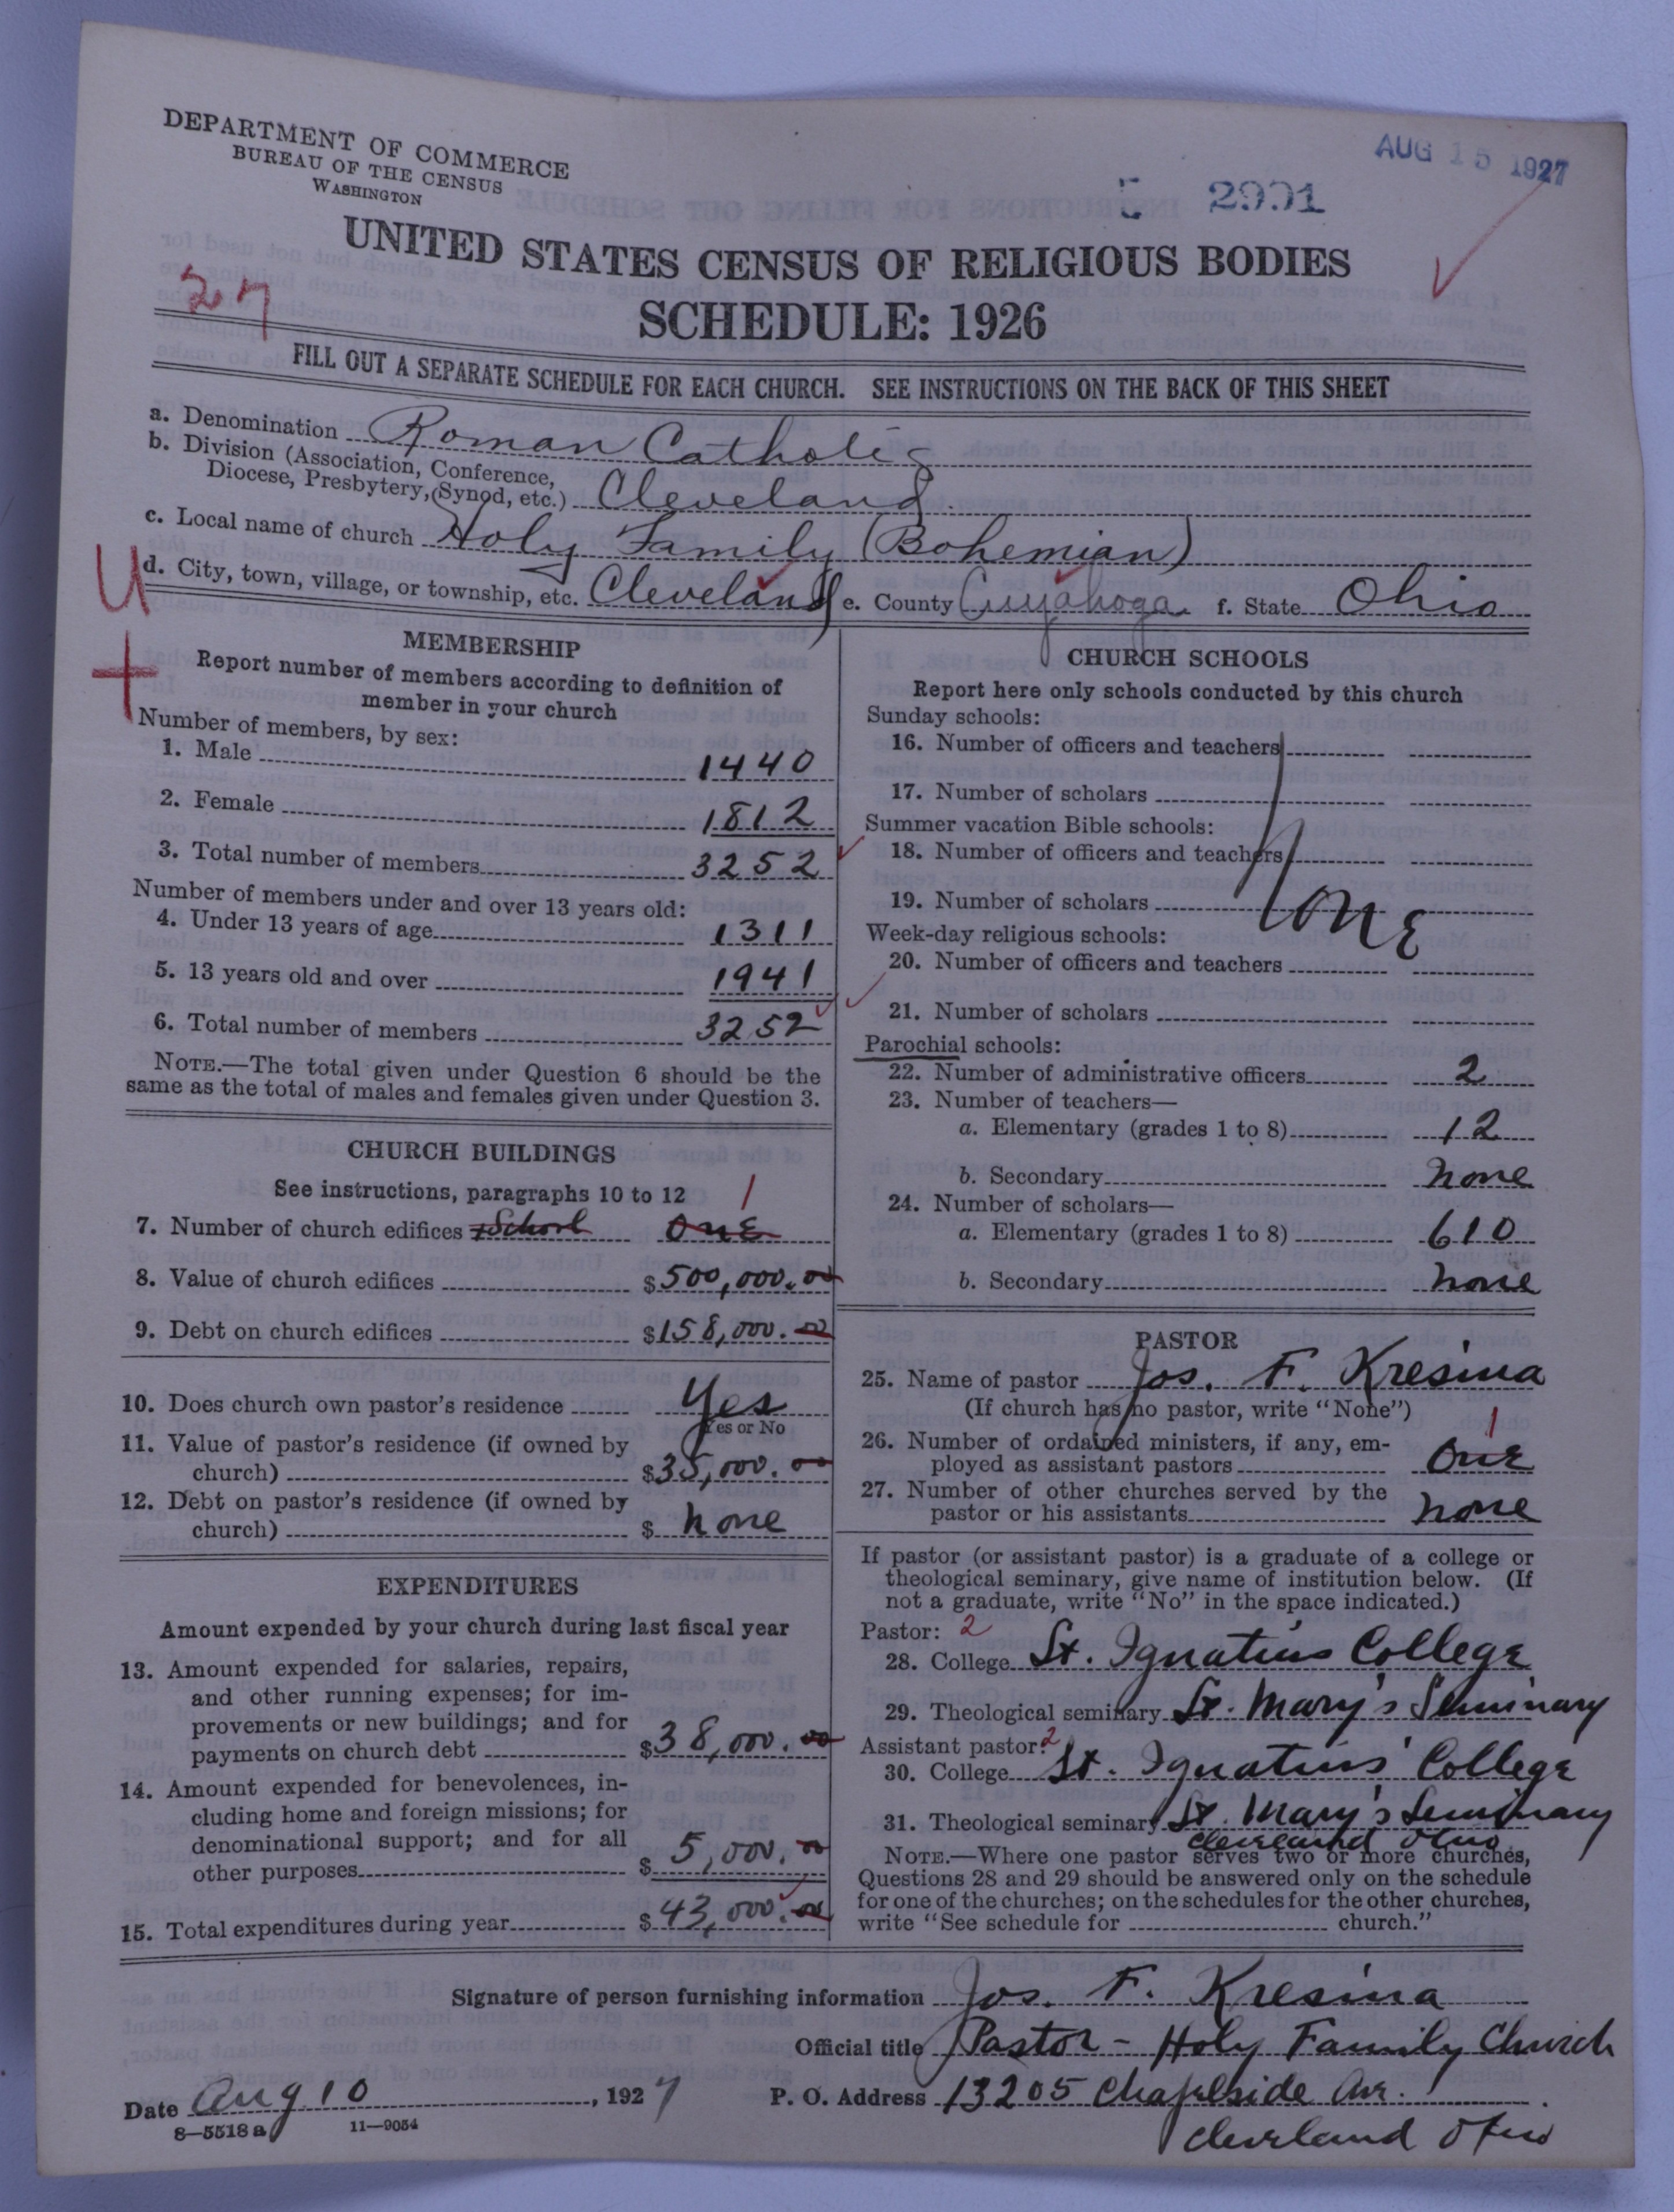 DEPARTMENT OF COMMERCE
BUREAU OF THE CENSUS
WASHINGTON
AUG 15 1927
2901
UNITED STATES CENSUS OF RELIGIOUS BODIES
27
SCHEDULE: 1926
FILL OUT A SEPARATE SCHEDULE FOR EACH CHURCH. SEE INSTRUCTIONS ON THE BACK OF THIS SHEET
a. Denomination Roman Catholic
b. Division (Association, Conference,
Diocese, Presbytery, Synod, etc.) Cleveland
c. Local name of church Holy Family (Bohemian)
U
d. City, town, village, or township, etc. Cleveland e. County Cuyahoga f. State Ohio
MEMBERSHIP
Report number of members according to definition of
member in your church
Number of members, by sex:
1. Male 1440
2. Female 1812
3. Total number of members 3252
Number of members under and over 13 years old:
4. Under 13 years of age 1311
5. 13 years old and over 1941
6. Total number of members 3252
NOTE.—The total given under Question 6 should be the
same as the total of males and females given under Question 3.
CHURCH BUILDINGS
See instructions, paragraphs 10 to 12 1
7. Number of church edifices +School One
8. Value of church edifices $500,000.00
9. Debt on church edifices $158,000.00
10. Does church own pastor's residence Yes
Yes or No
11. Value of pastor's residence (if owned by
church) $35,000.00
12. Debt on pastor's residence (if owned by
church) $ none
EXPENDITURES
Amount expended by your church during last fiscal year
13. Amount expended for salaries, repairs,
and other running expenses; for im-
provements or new buildings; and for
payments on church debt $38,000.00
14. Amount expended for benevolences, in-
cluding home and foreign missions; for
denominational support; and for all
other purposes $ 5,000.00
15. Total expenditures during year $43,000.00
CHURCH SCHOOLS
Report here only schools conducted by this church
Sunday schools:
16. Number of officers and teachers
17. Number of scholars
Summer vacation Bible schools:
18. Number of officers and teachers
19. Number of scholars
None
Week-day religious schools:
20. Number of officers and teachers
21. Number of scholars
Parochial schools:
22. Number of administrative officers 2
23. Number of teachers—
a. Elementary (grades 1 to 8) 12
b. Secondary none
24. Number of scholars—
a. Elementary (grades 1 to 8) 610
b. Secondary none
PASTOR
25. Name of pastor Jos. F. Kresina
(If church has no pastor, write "None")
26. Number of ordained ministers, if any, em-
ployed as assistant pastors One 1
27. Number of other churches served by the
pastor or his assistants none
If pastor (or assistant pastor) is a graduate of a college or
theological seminary, give name of institution below. (If
not a graduate, write "No" in the space indicated.)
Pastor: 2
28. College St. Ignatius College
29. Theological seminary St. Mary's Seminary
Assistant pastor: 2
30. College St. Ignatius College
31. Theological seminary St. Mary's Seminary
Cleveland Ohio
NOTE.—Where one pastor serves two or more churches,
Questions 28 and 29 should be answered only on the schedule
for one of the churches; on the schedules for the other churches,
write "See schedule for church."
Signature of person furnishing information Jos. F. Kresina
Official title Pastor - Holy Family Church
Date Aug 10, 1927 P. O. Address 13205 Chapelside Ave.
Cleveland Ohio
8—5518 a 11—9054